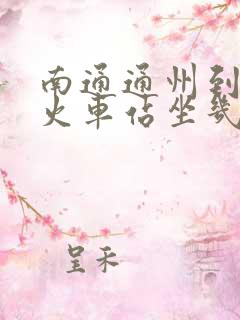 南通通州到
火車站坐幾
呈禾